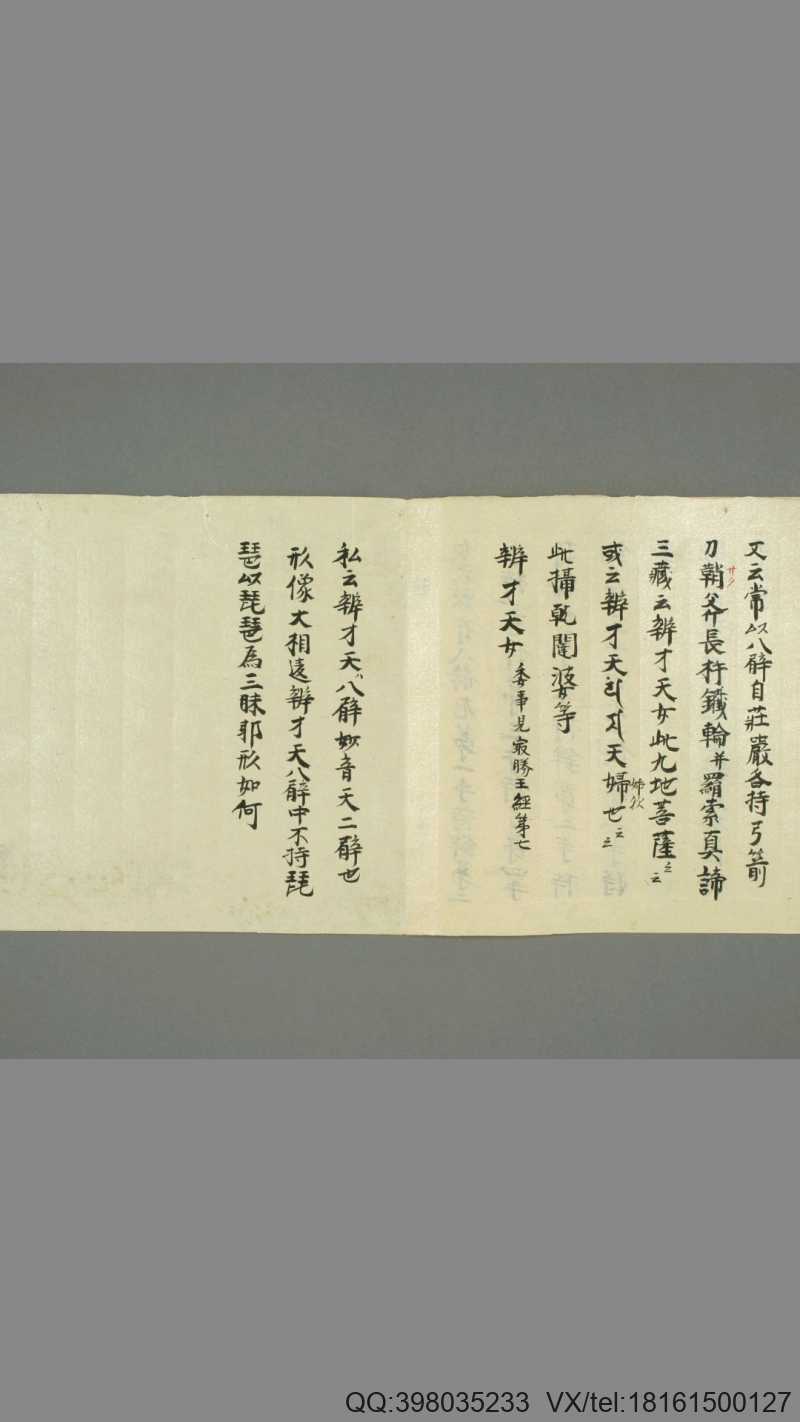 又云常以八臂自莊嚴各持弓箭
刀鞘斧長杵鐵輪并羅索真諦
三藏云辨才天女此九地菩薩云云
或云辨才天 天婦也云云
姉歟
此攝乾闥婆等
辨才天女 委事見最勝王經第七
私云辨才天八臂妙音天二臂也
形像大相遠辨才天八臂中不持琵
琶以琵琶為三昧耶形如何
QQ:398035233 VX/tel:18161500127